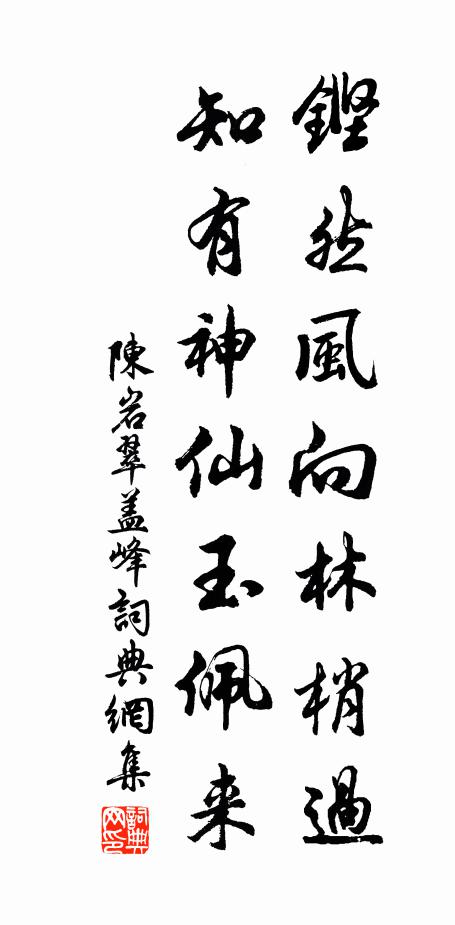 鏗然風向林梢過
知有神仙玉佩来
陳岩翠盖峰詞典網集
詞典网印